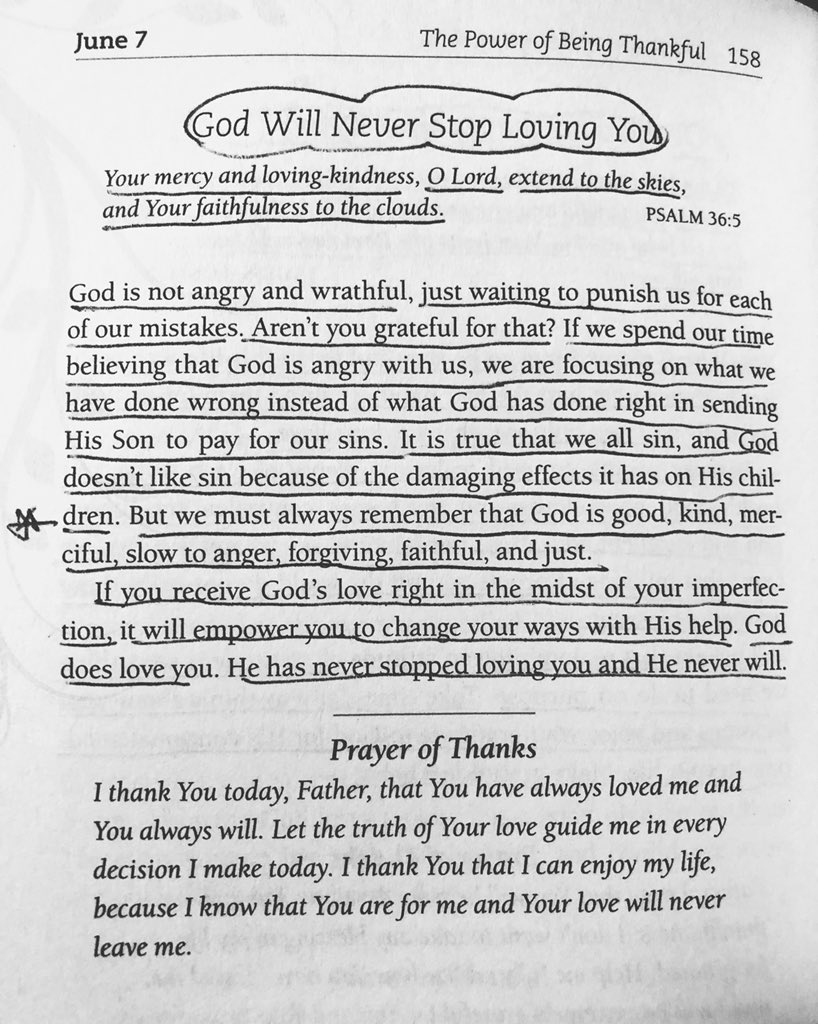 June 7 The Power of Being Thankful 158
God Will Never Stop Loving You
Your mercy and loving-kindness, O Lord, extend to the skies,
and Your faithfulness to the clouds. PSALM 36:5
God is not angry and wrathful, just waiting to punish us for each
of our mistakes. Aren't you grateful for that? If we spend our time
believing that God is angry with us, we are focusing on what we
have done wrong instead of what God has done right in sending
His Son to pay for our sins. It is true that we all sin, and God
doesn't like sin because of the damaging effects it has on His chil-
dren. But we must always remember that God is good, kind, mer-
ciful, slow to anger, forgiving, faithful, and just.
If you receive God's love right in the midst of your imperfec-
tion, it will empower you to change your ways with His help. God
does love you. He has never stopped loving you and He never will.
Prayer of Thanks
I thank You today, Father, that You have always loved me and
You always will. Let the truth of Your love guide me in every
decision I make today. I thank You that I can enjoy my life,
because I know that You are for me and Your love will never
leave me.